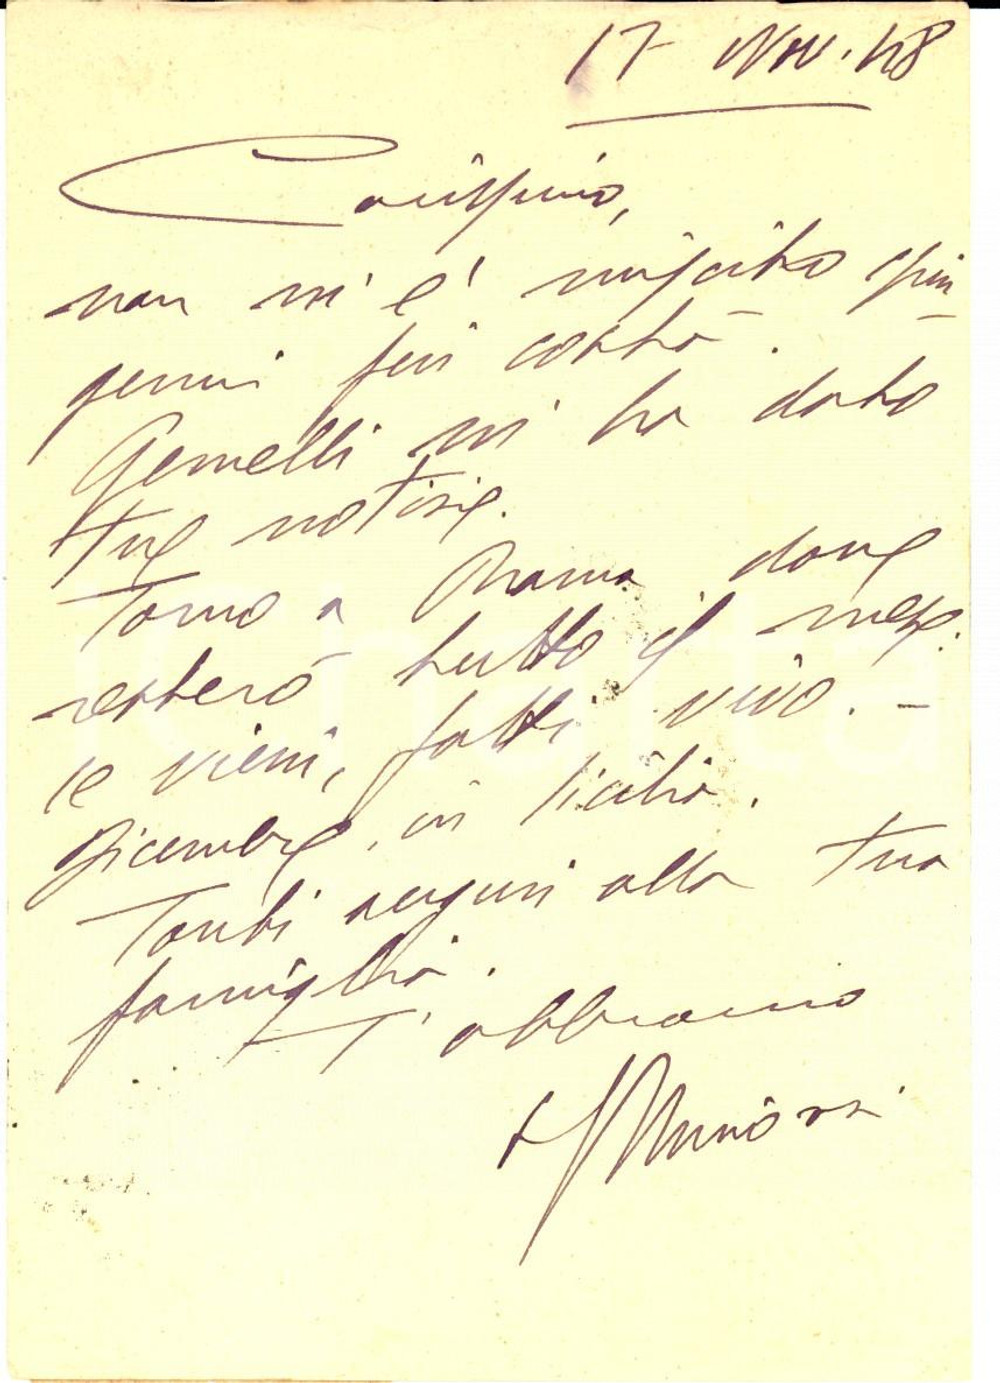 17 Nov. 48
Carissimo,
non mi è riuscito spin
germi fin costà.
Gemelli mi ha dato
tue notizie.
Torno a Roma dove
resterò tutto il mese.
se vieni, fatti vivo. -
Dicembre, in Sicilia.
Tanti auguri alla tua
famiglia.
T'abbraccio